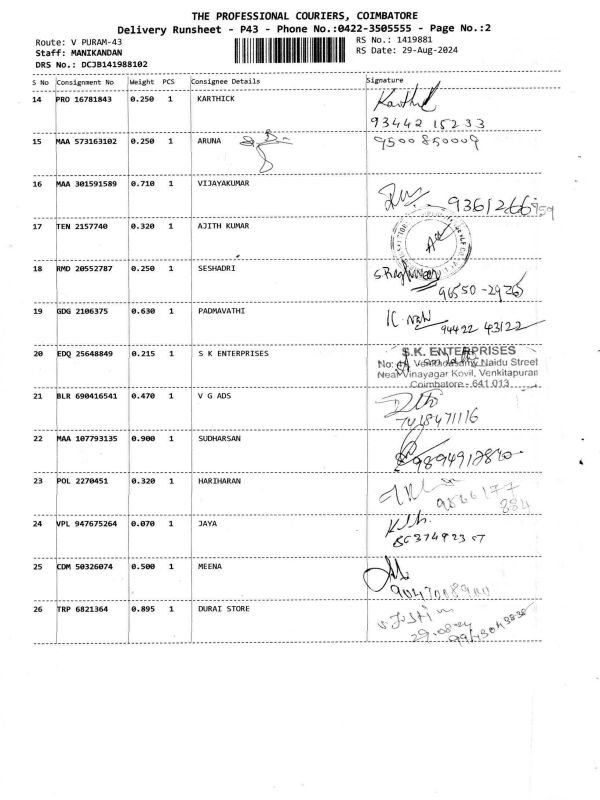 THE PROFESSIONAL COURIERS, COIMBATORE
Delivery Runsheet - P43 - Phone No.:0422-3505555 - Page No.:2
Route: V PURAM-43
RS No.: 1419881
Staff: MANIKANDAN
RS Date: 29-Aug-2024
DRS No.: DCJB141988102
S No Consignment No Weight PCS Consignee Details Signature
14 PRO 16781843 0.250 1 KARTHICK
93442 15233
15 MAA 573163102 0.250 1 ARUNA 9500850009
16 MAA 301591589 0.710 1 VIJAYAKUMAR
17 TEN 2157740 0.320 1 AJITH KUMAR
18 RMD 20552787 0.250 1 SESHADRI
19 GDG 2106375 0.630 1 PADMAVATHI
94422 43122
20 EDQ 25648849 0.215 1 S K ENTERPRISES S.K. ENTERPRISES
No: Venkadasamy Naidu Street
Near Vinayagar Kovil, Venkitapuram
Coimbatore - 641 013
21 BLR 690416541 0.470 1 V G ADS
22 MAA 107793135 0.900 1 SUDHARSAN
23 POL 2270451 0.320 1 HARIHARAN
24 VPL 947675264 0.070 1 JAYA
25 CDM 50326074 0.500 1 MEENA
26 TRP 6821364 0.895 1 DURAI STORE